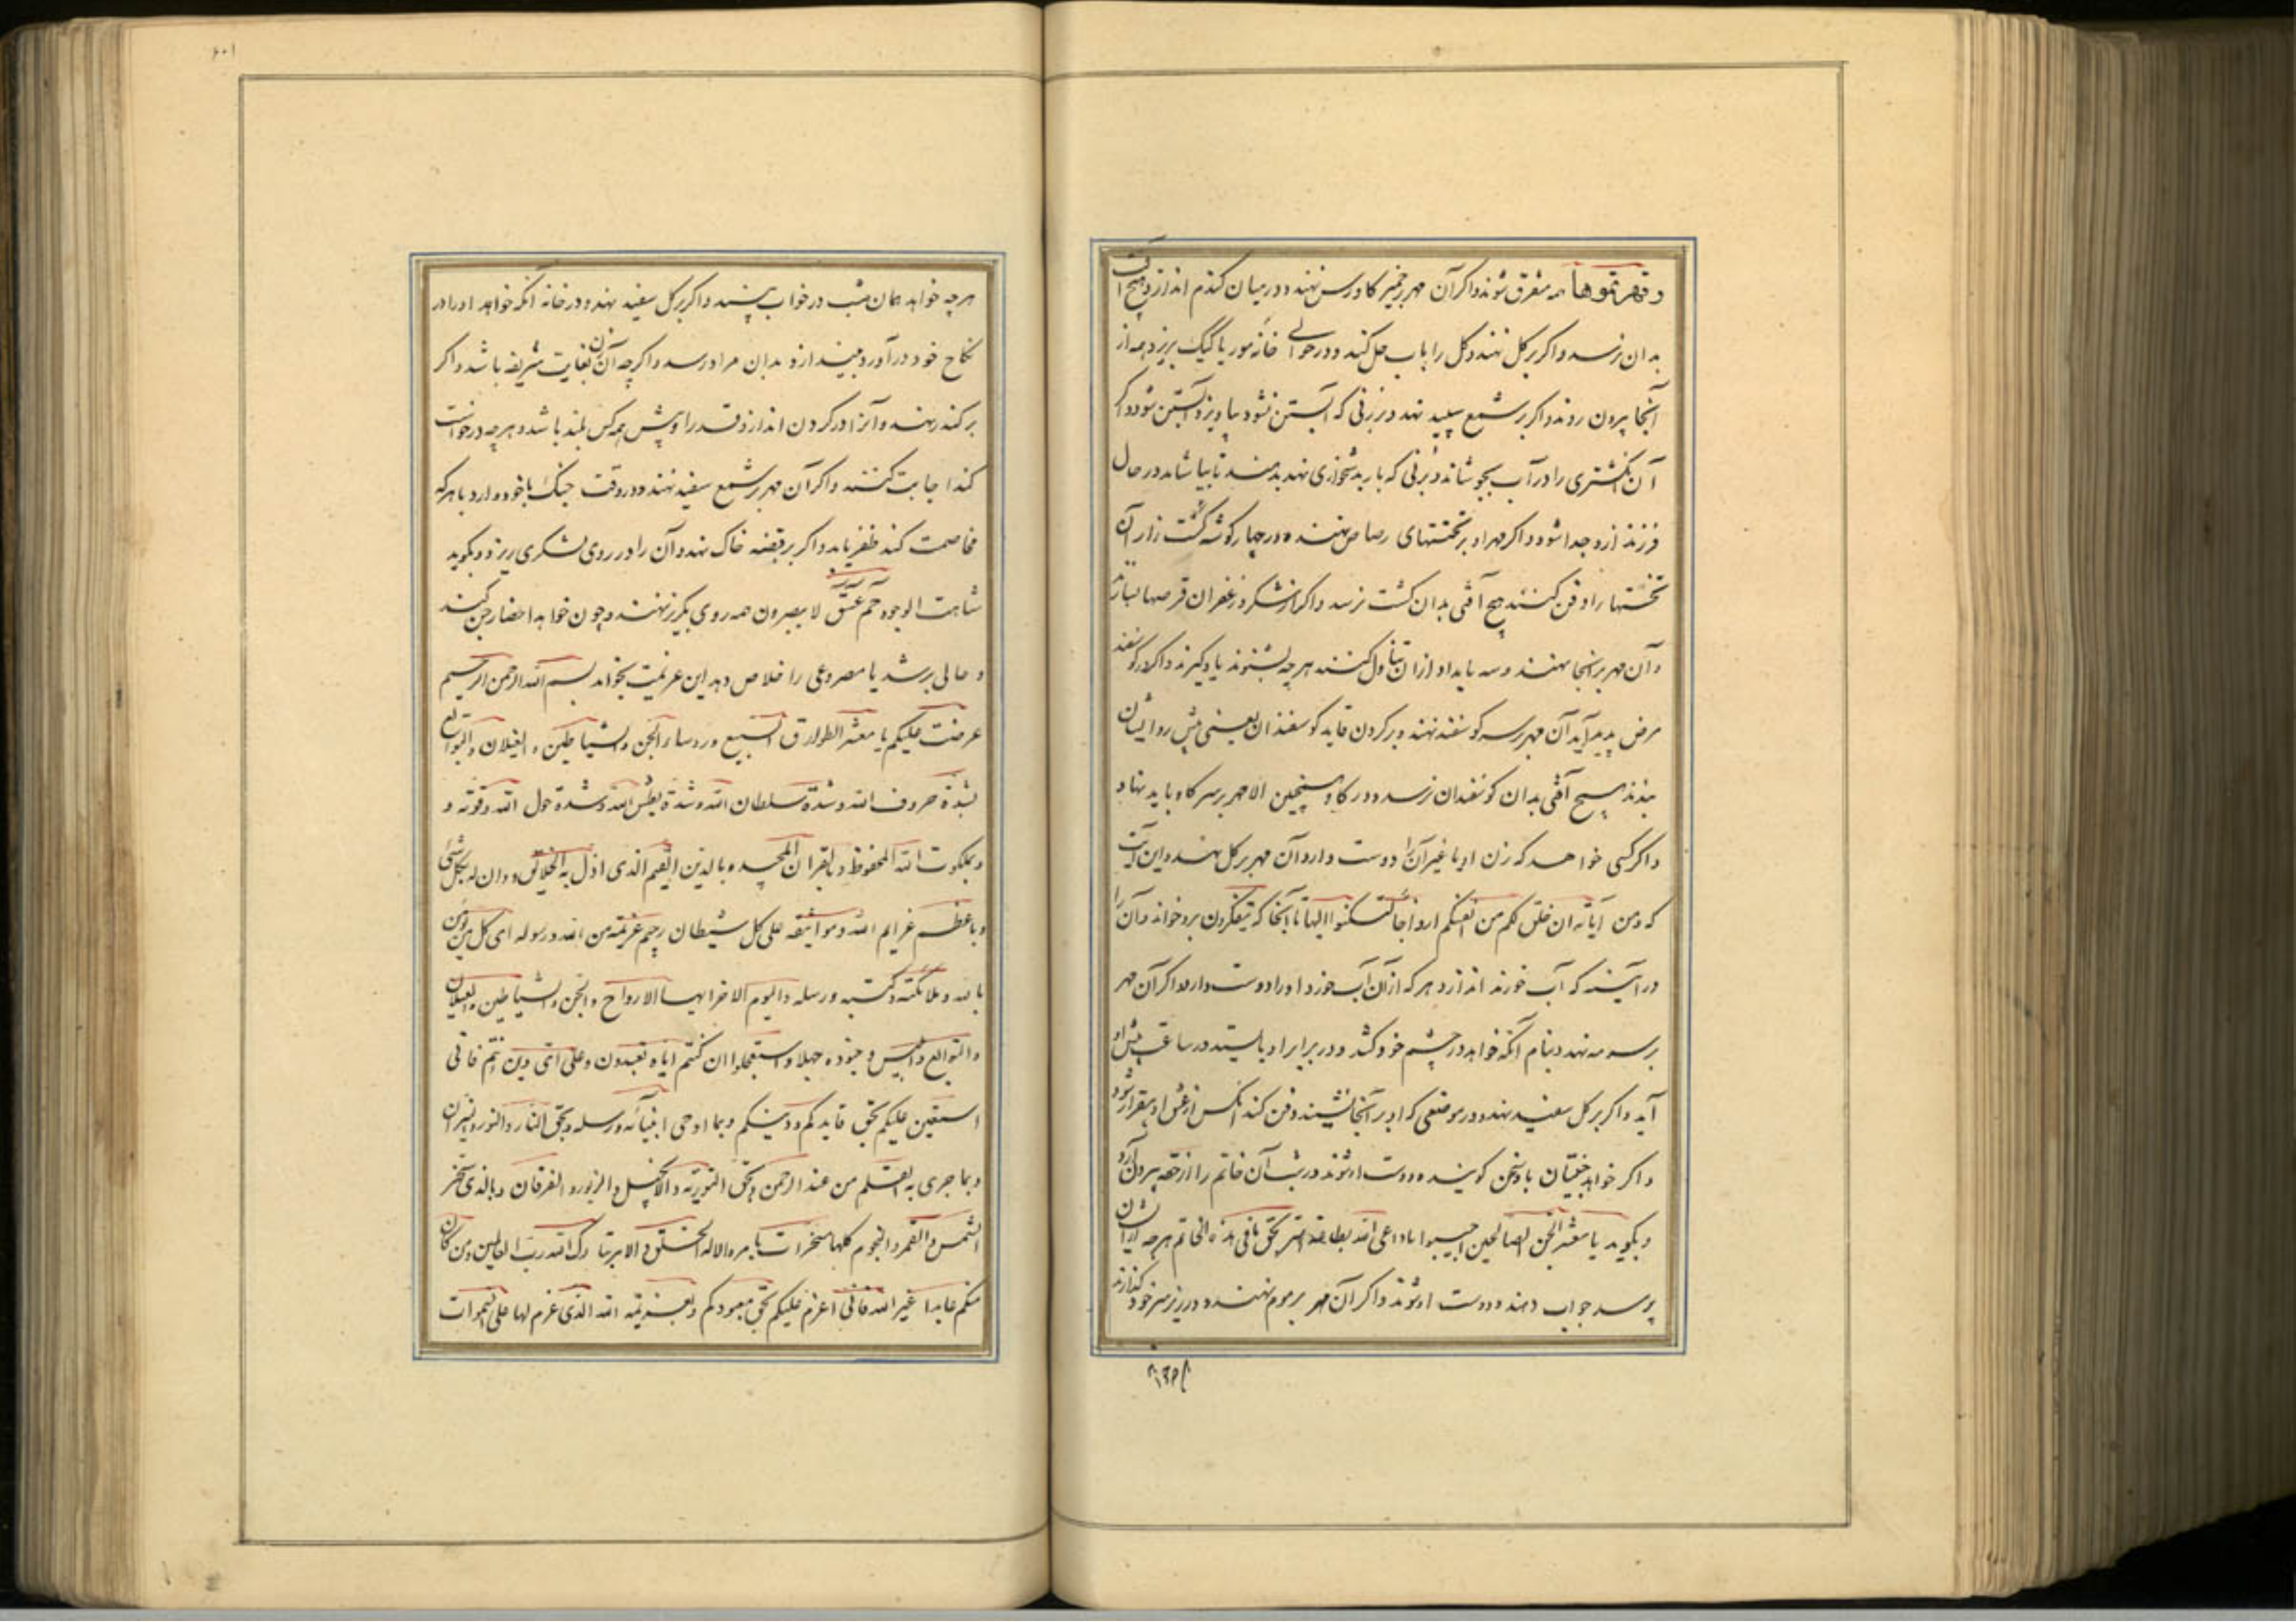 و قهرتموها همه متفرق شوند و اکر آن مهر بر خمیر کاورس نهند و در میان کندم اندازد هیچ آفت
بدان نرسد و اکر بر کل نهند و کل را بآب حل کند و در حوالی خانه مور یا کیک بریزد همه از
آنجا بیرون روند و اکر بر شمع سپید نهد و بر زنی که آبستن نشود بیاویزد آبستن شود و اکر
آن انکشتری را در آب بجوشاند و بزنی که بار بدشخواری نهد بدهند تا بیاشامد در حال
فرزند ازو جدا شود و اکر مهر او بر تختهای رصاص نهند و در چهار کوشه کشت زار آن
تختها را دفن کنند هیچ آفتی بدان کشت نرسد و اکر از شکر و زعفران قرصها بسازند
و آن مهر بر انجا نهند و سه بامداد از ان تناول کنند هر چه بشنوند یاد کیرند و اکر در کوسفند
مرض پدید آید آن مهر بر سه کوسفند نهند و بر کردن قاید کوسفندان یعنی پیش رو ایشان
بندند هیچ آفتی بدان کوسفندان نرسد و در کاو همچنین الا مهر بر سر کاو باید نهاد
و اکر کسی خواهد که زن او یا غیر آن او را دوست دارد آن مهر بر کل نهند و این آیت
که و من آیاته ان خلق لکم من انفسکم ازواجا لتسکنوا الیها تا آنجا که یتفکرون برو خواند و آن را
در آبینه که آب خورند اندازد هر که از آن آب خورد او را دوست دارد و اکر آن مهر
بر سرمه نهد و بنام آنکه خواهد در چشم خود کشد و در برابر او بایستد در ساعت پیش او
آید و اکر بر کل سفید نهد و در موضعی که او بر آنجا نشیند دفن کند آنکس از عشق او بیقرار شود
و اکر خواهد جنیان با او سخن کویند و دوست او شوند در شب آن خاتم را از حقه بیرون آرد
و بکوید یا معشر الجن الصالحین اجیبوا یا داعی الله بطاعة الله بحق ما فی هذه الخاتم هر چه از ایشان
پرسد جواب دهند و دوست او شوند و اکر آن مهر بر موم نهند و در زیر سر خود کذارند
هرچه
هرچه خواهد همان شب در خواب بیند و اکر بر کل سفید نهد و در خانه آنکه خواهد او را در
نکاح خود در آورد بیندازد بدان مراد رسد و اکر چه آن زن بغایت شریفه باشد و اکر
بر کندر نهند و آنرا در کردن اندازد قدر او پیش همه کس بلند باشد و هر چه درخواست
کند اجابت کنند و اکر آن مهر بر شمع سفید نهند و در وقت جنک با خود دارد با هر که
مخاصمت کند ظفر یابد و اکر بر قبضه خاک نهد و آن را در روی لشکری ریزد و بکوید
شاهت الوجوه حم عسق لا یبصرون همه روی بکریز نهند و چون خواهد احضار جن کند
و حالی بپرسد یا مصروعی را خلاص دهد این عزیمت بخواند بسم الله الرحمن الرحیم
عزمت علیکم یا معشر الطوارق السبع و روساء الجن و الشیاطین و الغیلان و التوابع
بشدة حروف الله و شدة سلطان الله و شدة بطش الله و شدة حول الله و قوته و
و بملکوت الله المحفوظ و بالقران المجید و بالدین القیم الذی اذل به الخلائق و دان له بکل شیء
و باعظم عزایم الله و مواثیقه علی کل شیطان رجیم عزیمة من الله و رسوله الی کل من یؤمن
بالله و ملائکته و کتبه و رسله و الیوم الاخر ایها الارواح و الجن و الشیاطین و الغیلان
و التوابع و ابلیس و جنوده جهلا و استعجلوا ان کنتم ایاه تعبدون و علی ای دین انتم فانی
استعین علیکم بحق قایدکم و دینکم و بما اوحی انبیآئه و رسله و بحق النار و النور و النیران
و بما جری به القلم من عند الرحمن و بحق التوریة و الانجیل و الزبور و الفرقان و بالذی سخر
الشمس و القمر و النجوم کلها مسخرات بامره الا له الخلق و الامر تبارک الله رب العالمین و من کان
منکم عابدا غیر الله فانی اعزم علیکم بحق معبودکم و بعزیمة الله الذی عزم لها علی السموات